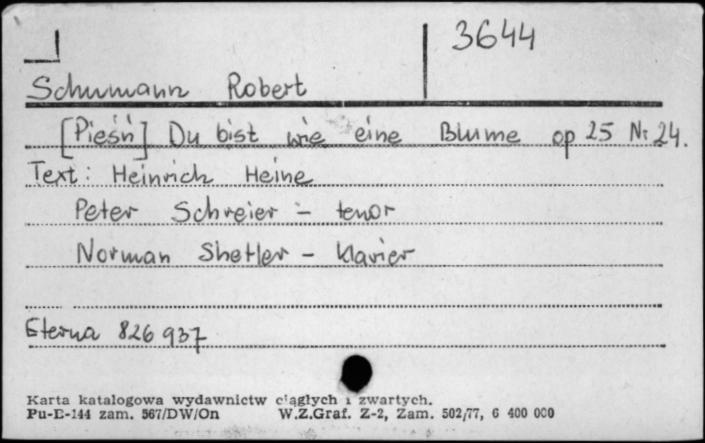 3644
Schumann Robert
[Pieśń] Du bist wie eine Blume op 25 Nr 24.
Text: Heinrich Heine
Peter Schreier - tenor
Norman Shetler - Klavier
Eterna 826 937
Karta katalogowa wydawnictw ciągłych i zwartych.
Pu-E-144 zam. 567/DW/On W.Z.Graf. Z-2, Zam. 502/77, 6 400 000